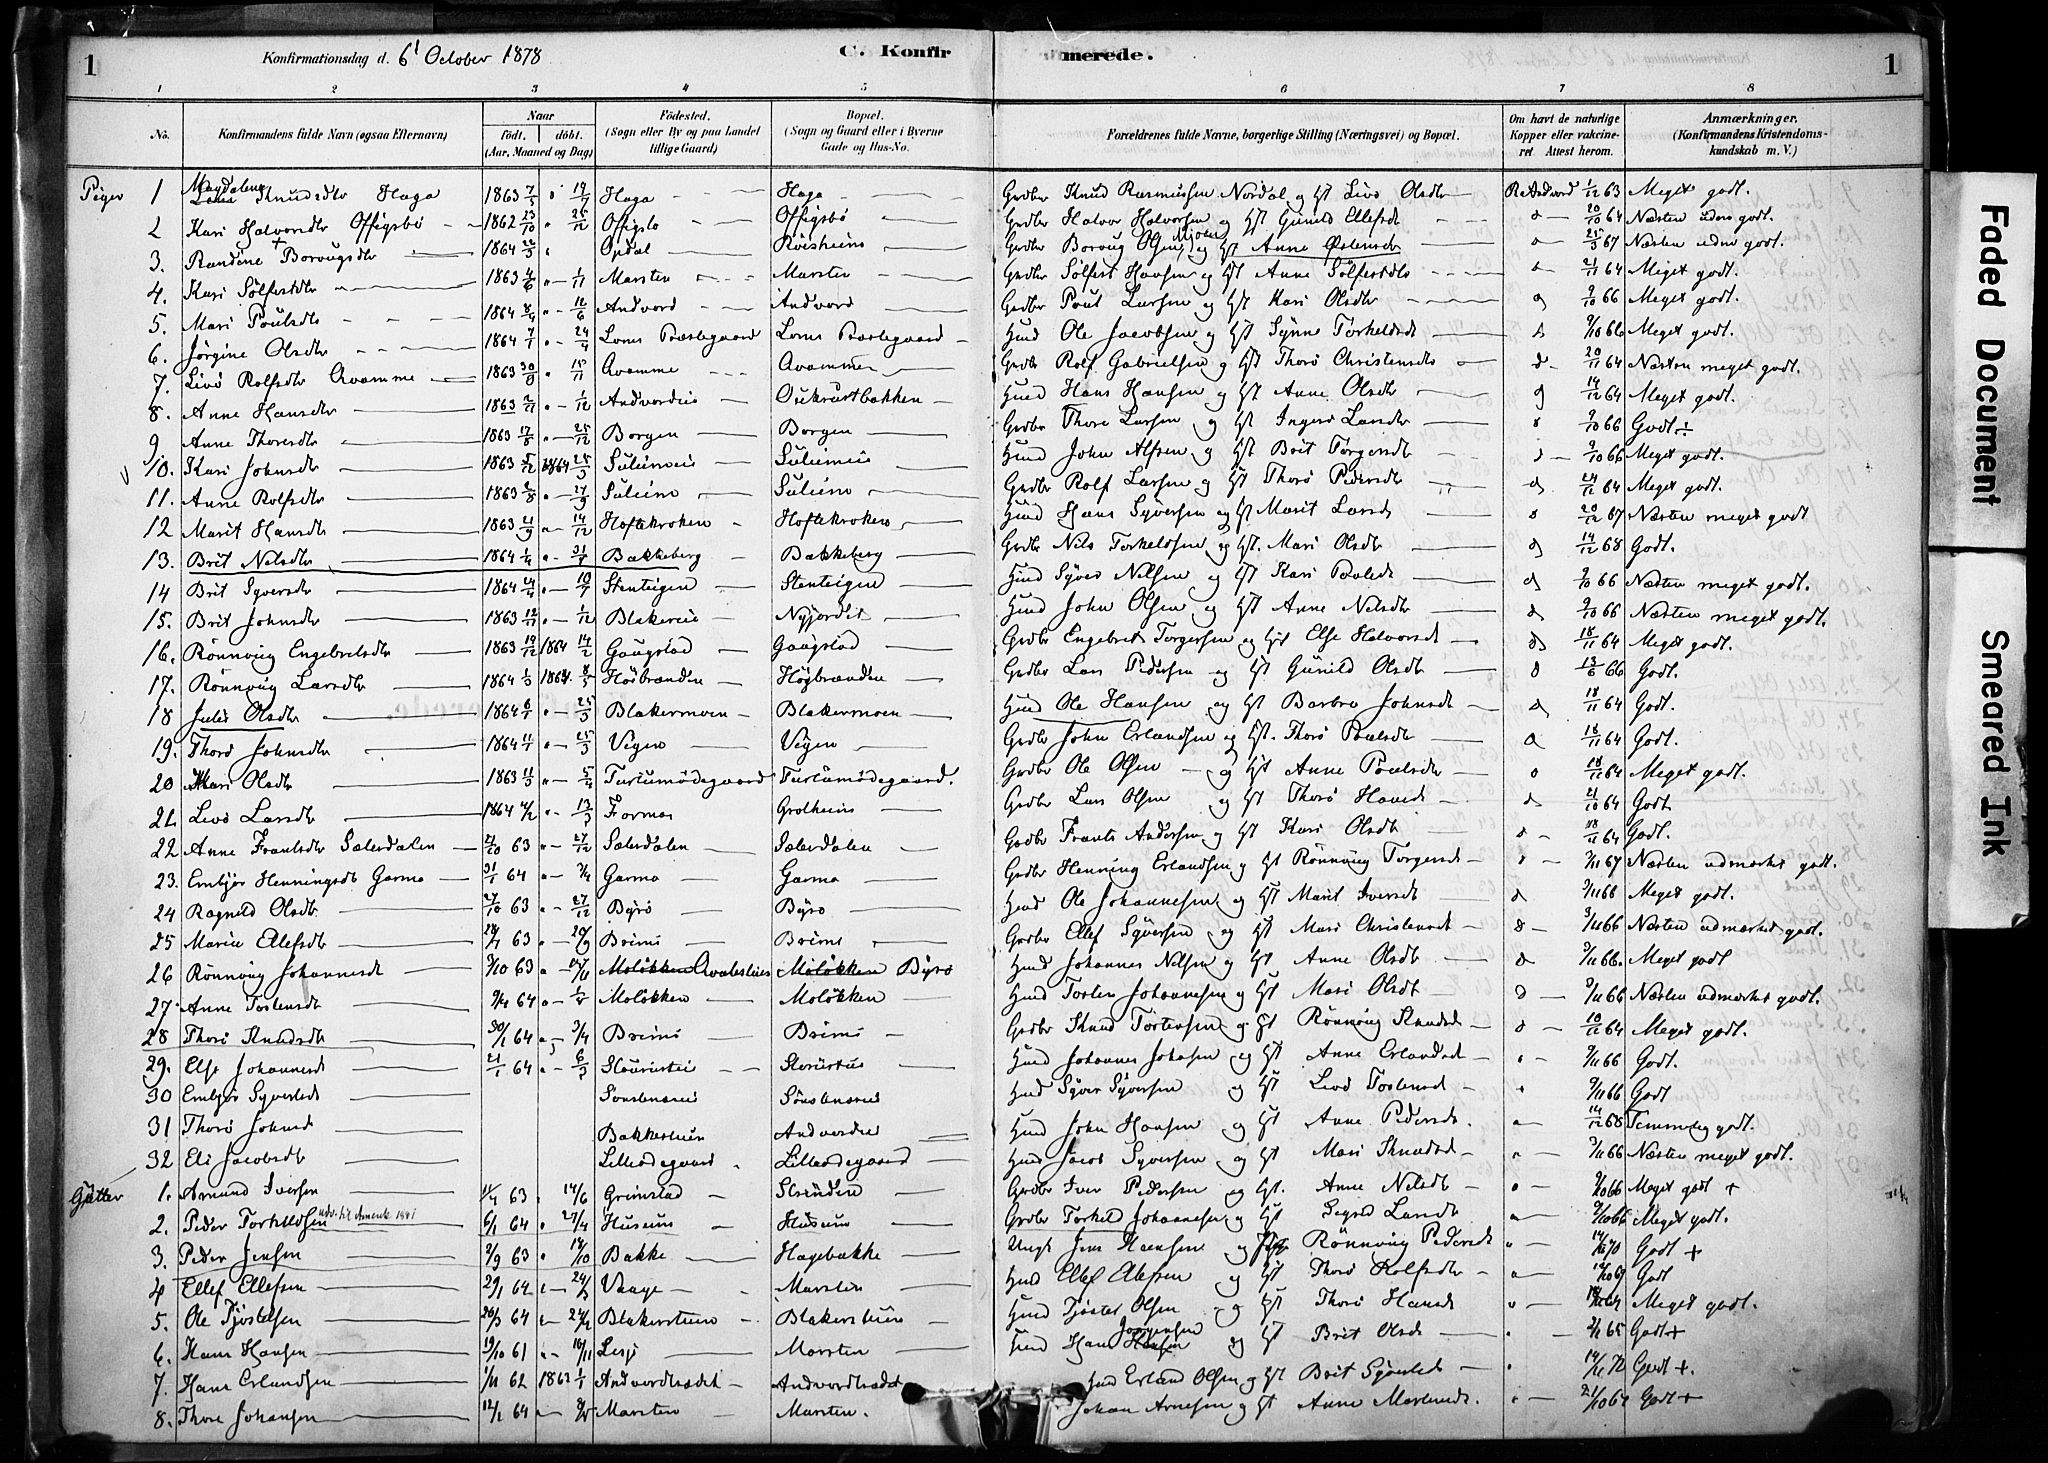 1 Konfirmationsdag d. 6' October 1878 C. Konfir merede. 1
1 2 3 4 5 6 7 8
No. Konfirmandens fulde Navn (ogsaa Efternavn) Naar født, døbt. (Aar, Maaned og Dag) Fødested. (Sogn eller By og paa Landet tillige Gaard) Bopæl. (Sogn og Gaard eller i Byerne Gade og Hus-No. Forældrenes fulde Navne, borgerlige Stilling (Næringsvei) og Bopæl. Om havt de naturlige Kopper eller vaksineret Attest herom. Anmærkninger. (Konfirmandens Kristendomskundskab m. V.)
Piger 1 Magdalena Knudsdtr Haga 1863 7/5 19/7 Haga Haga Grdbr Knud Rasmussen Nordal og Hst Livø Olsdtr 1/12 63 Meget godt.
2 Kari Halvorsdtr Offigsbø 1862 23/10 26/12 Offigsbø Offigsbø Grdbr Halvor Halvorsen og Hst Gunild Ellefsdt 20/10 64 Næsten udm godt.
3. Randine Borougsdtr 1864 Opdal Røisheim Grdbr Boroug Olsen Mjoen og Hst Anne Østensdtr 67 Næsten udm godt.
4. Kari Sølfestdtr 1863 4/6 1/11 Marstein Marstein Grdbr Sølfest Hansen og Hst Anne Sølfestdtr 21/11 64 Meget godt.
5. Mari Poulsdtr 1864 Andvord Andvord Grdbr Poul Larsen og Hst Kari Olsdtr 9/10 66 Meget godt.
6. Jørgine Olsdtr 1864 7/1 24/4 Loms Præstegaard Loms Præstegaard Hmd Ole Jacobsen og Hst Synne Torkeldsdt 9/10 66 Meget godt.
7. Livø Rolfsdtr Qvamme 1863 15/11 Qvamme Qvamme Grdbr Rolf Gabrielsen og Hst Thorø Christensdtr 20/11 64 Næsten meget godt.
8. Anne Hansdtr 1863 2/11 1/12 Andvordeie Oukrustbakken Hmd Hans Hansen og Hst Anne Olsdtr 14/12 64 Meget godt.
9 Anne Thoresdtr 1863 25/12 Borgen Borgen Grdbr Thore Larsen og Hst Ingerø Larsdtr 9/10 66 Godt ÷
10. Kari Johnsdtr 1863 5/12 1864 28/3 Suleimeie Suleimeie Hmd John Alfsen og Hst Brit Torgersdtr 9/10 66 Meget godt.
11. Anne Rolfsdtr 1863 2/8 27/9 Suleim Suleim Grdbr Rolf Larsen og Hst Thorø Pedersdtr 64 Meget godt.
12 Marit Hansdtr 1863 21/9 14/12 Hoftekroken Hoftekroken Hmd Hans Syversen og Hst Marit Larsdt 20/12 67 Næsten meget godt
13. Brit Nilsdtr 1864 31/7 Bakkeberg Bakkeberg Grdbr Nils Torkeldsen og Hst. Mari Olsdtr 14/12 68 Godt.
14 Brit Syversdtr 1864 Stenteigen Stenteigen Hmd Syver Nilsen og Hst Kari Povlsdt 9/10 66 Næsten meget godt.
15. Brit Johnsdtr 1863 12/11 1/12 Blakereie Nyjordet Hmd John Olsen og Hst Anne Nilsdtr 9/10 66 Næsten meget godt.
16. Rønnoug Engebretsdtr 1863 19/12 1864 14/2 Gaugstad Gaugstad Grdbr Engebret Torgersen og Hst Else Halvorsdt 18/11 64 Meget godt.
17. Rønnoug Larsdtr 1864 1/3 1864. 8/5 Høibrænden Høibrænden Grdbr Lars Pedersen og Hst Gunild Olsdtr 13/6 66 Godt.
18 Julie Olsdtr 1864 6/1 25/3 Blakermoen Blakermoen Hmd Ole Hansen og Hst Barbro Johnsdt 18/11 64 Godt.
19. Thorø Johnsdtr 1864 11/1 25/3 Vigen Vigen Grdbr John Erlandsen og Hst. Thorø Povlsdtr 18/11 64 Godt.
20 Mari Olsdtr 1863 11/3 5/4 Turtumødegaard Turtumødegaard. Grdbr Ole Olsen og Hst Anne Poulsdtr 18/11 64 Meget godt.
21. Livø Larsdtr 1864 4/2 13/3 Formo Grotheim Grdbr Lars Olsen og Hst Thorø Hansdt 21/10 64 Godt
22 Anne Frantsdtr Sælerdalen 21/10 63 27/12 Sælerdalen Sælerdalen Grdbr Frants Andersen og Hst Kari Olsdtr 18/11 64 Godt.
23. Embjør Henningsdt Garmo 31/1 64 Garmo Garmo Grdbr Henning Erlandsen og Hst Rønnoug Torgersdt 67 Næsten udmærket godt.
24 Ragnild Olsdt. 27/10 63 27/12 Byrø Byrø Hmd Ole Johannesen og Hst Marit Iversdt 66 Meget godt.
25 Marie Ellefsdt 28/7 63 20/9 Brimi Brimi Grdbr Ellef Syversen og Hst Mari Christensdt 3/11 66 Næsten udmærket godt.
26 Rønnoug Johannesdt 9/10 63 Moløkken Moløkken Byrø Hmd Johannes Nilsen og Hst Anne Olsdtr 66. Meget godt
27. Anne Torstensdt 9/4 64 1/5 Moløkken Moløkken Hmd Torsten Johannesen og Hst Mari Olsdt 66 Næsten udmærket godt.
28 Thorø Knudsdt 30/1 64 3/4 Brimi Brimi Grdbr Knud Torstensen og Hst Rønnoug Knudsdt 10/11 64 Meget godt.
29. Else Johannesdt 21/1 64 6/3 Hmd Johannes Johnsen og Hst Anne Erlandsdt 66 Godt.
30 Embjør Syversdt Sønstenæseie Sønstenæseie Hmd Syver Syversen og Hst Livø Torstensdt 66 Godt
31 Thorø Johnsdt Bakkesteien Andvordeie Hmd John Hansen og Hst Anne Pedersdt. 14/12 68 Temmelig godt.
32 Eli Jacobsdt Lilleødegaard Lilleødegaard Hmd Jacob Syversen og Hst Mari Knudsdt 66 Næsten meget godt.
Gutter 1. Amund Iversen 63 14/6 Grimstad Strinden Grdbr Iver Pedersen og Hst. Anne Nilsdtr 9/10 66 Meget godt +
2. Peder Torkildsen udv. til Amerik 1881 6/1 64 27/4 Huseum Huseum Grdbr Torkeld Johannesen og Hst Sigrid Larsdt 9/10 66 Meget godt.
3. Peder Jensen 2/9 63 18/10 Bakke Hagebakke Ungk Jens Hansen og Pige Rønnoug Pedersdt 14/12 70 Godt +
4 Ellef Ellefsen 29/1 64 Vaage Marstein Hmd Ellef Ellefsen og Hst Thorø Rolfsdtr Godt
5. Ole Tjøstelsen 64 Blakersteien Blakersteien Hmd Tjøstel Olsen og Hst Thorø Hansdt 64 Meget godt.
6. Hans Hansen 19/10 61 10/11 Lesje Marstein Hmd Hans Jørgensen og Hst Brit Olsdt 65 Godt +
7. Hans Erlandsen 1/11 62 1863 1/1 Andvordtrædet Andvordtrædet Hmd Erland Olsen og Hst Brit Syversdt 14/12 72 Godt +.
8. Thore Johansen 12/2 64 Marstein Marstein. Johan Arnesen og Hst Anne 21/10 64 Godt +
Faded Document
Smeared Ink